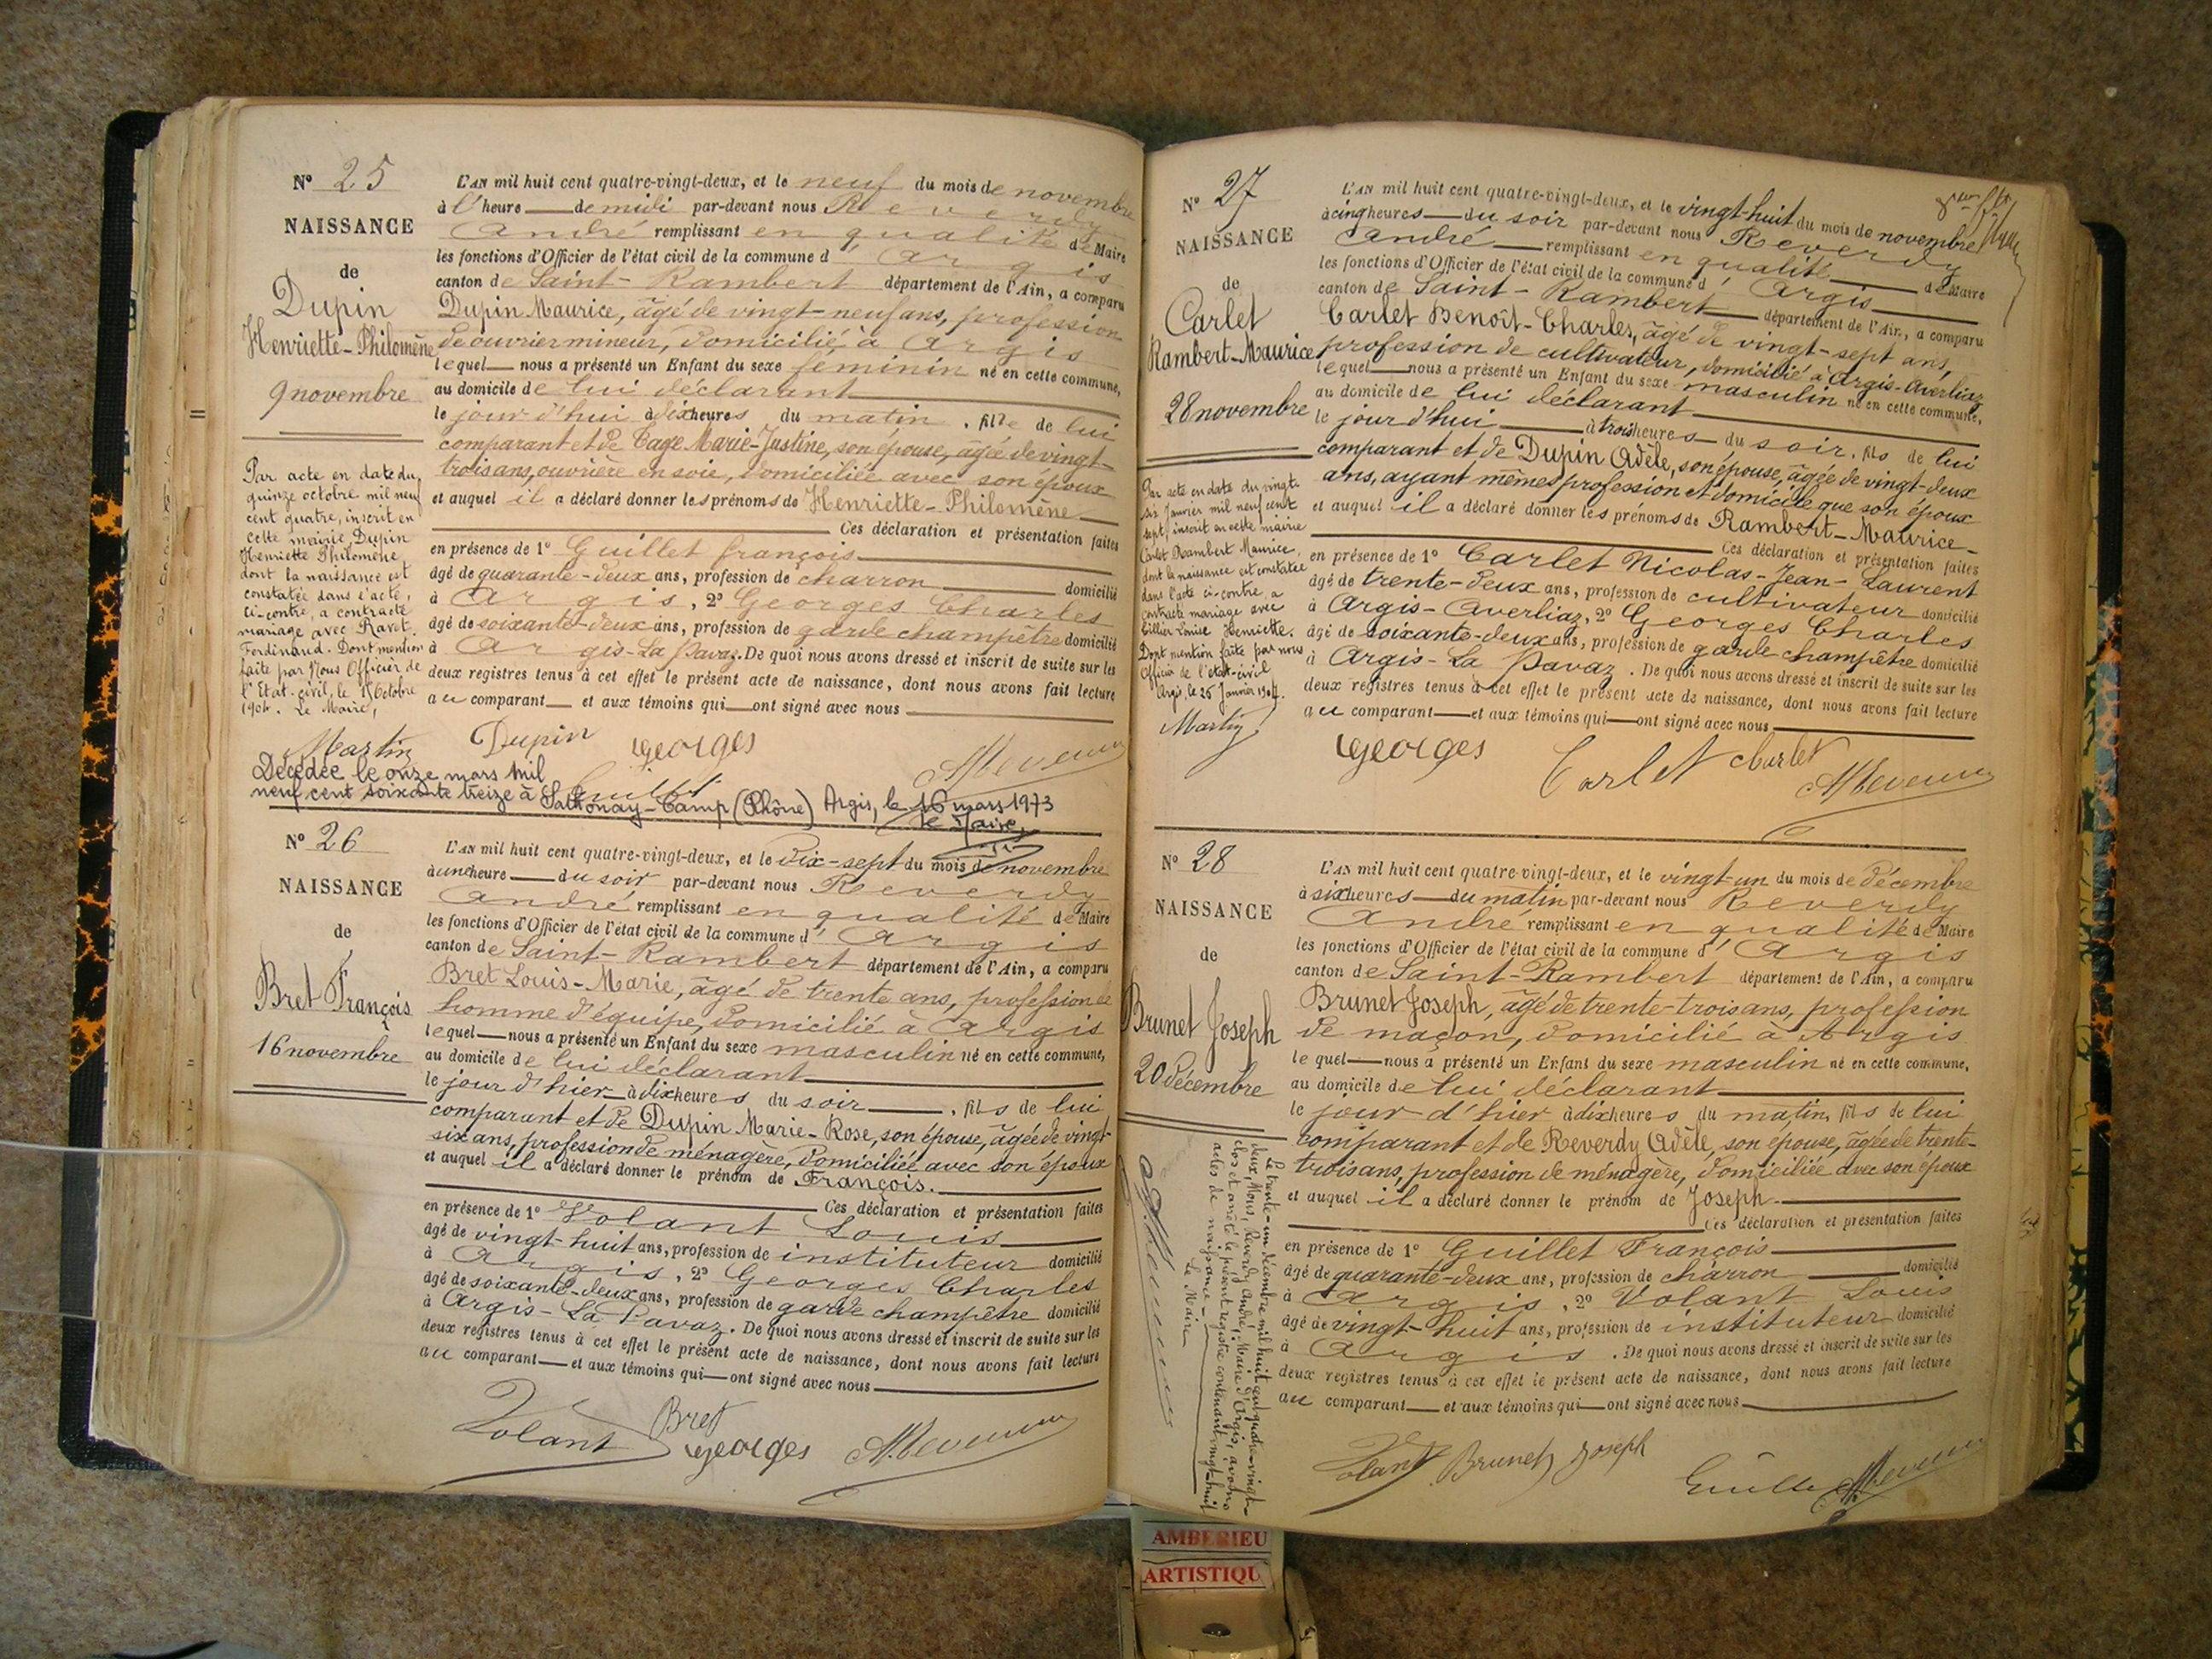 N° 25
NAISSANCE
de
Dupin
Henriette-Philomène
9 novembre
Par acte en date du
quinze octobre mil neuf
cent quatre, inscrit en
cette mairie, Dupin
Henriette Philomène
dont la naissance est
constatée dans l'acte,
ci-contre, a contracté
mariage avec Ravet
Ferdinand. Dont mention
faite par Nous Officier de
l'Etat-civil, le Octobre
1904. Le Maire,
Martin
L'AN mil huit cent quatre-vingt-deux, et le neuf du mois de novembre
à l'heure de midi par-devant nous Reverdy
André remplissant en qualité de Maire
les fonctions d'Officier de l'état civil de la commune d'Argis
canton de Saint-Rambert département de l'Ain, a comparu
Dupin Maurice, âgé de vingt-neuf ans, profession
de ouvrier mineur, domicilié à Argis
lequel nous a présenté un Enfant du sexe féminin né en cette commune,
au domicile de lui déclarant
le jour d'hui à dix heures du matin, fille de lui
comparant et de Cage Marie-Justine, son épouse, âgée de vingt-
trois ans, ouvrière en soie, domiciliée avec son époux
et auquel il a déclaré donner les prénoms de Henriette-Philomène
Ces déclaration et présentation faites
en présence de 1° Guillet françois
âgé de quarante-deux ans, profession de charron domicilié
à Argis, 2° Georges Charles
âgé de soixante-deux ans, profession de garde champêtre domicilié
à Argis-La Pavaz. De quoi nous avons dressé et inscrit de suite sur les
deux registres tenus à cet effet le présent acte de naissance, dont nous avons fait lecture
au comparant et aux témoins qui ont signé avec nous
Dupin Georges
Guillet
Décédée le onze mars mil
neuf cent soixante treize à Sathonay-Camp (Rhône) Argis, le 16 mars 1973
le Maire,
N° 26
NAISSANCE
de
Bret François
16 novembre
L'AN mil huit cent quatre-vingt-deux, et le dix-sept du mois de novembre
à une heure du soir par-devant nous Reverdy
André remplissant en qualité de Maire
les fonctions d'Officier de l'état civil de la commune d'Argis
canton de Saint-Rambert département de l'Ain, a comparu
Bret Louis-Marie, âgé de trente ans, profession de
homme d'équipe, domicilié à Argis
lequel nous a présenté un Enfant du sexe masculin né en cette commune,
au domicile de lui déclarant
le jour d'hier à dix heures du soir, fils de lui
comparant et de Dupin Marie-Rose, son épouse, âgée de vingt-
six ans, profession de ménagère, domiciliée avec son époux
et auquel il a déclaré donner le prénom de François.
Ces déclaration et présentation faites
en présence de 1° Volant Louis
âgé de vingt-huit ans, profession de instituteur domicilié
à Argis, 2° Georges Charles
âgé de soixante-deux ans, profession de garde champêtre domicilié
à Argis-La Pavaz. De quoi nous avons dressé et inscrit de suite sur les
deux registres tenus à cet effet le présent acte de naissance, dont nous avons fait lecture
au comparant et aux témoins qui ont signé avec nous
Volant Bret
Georges
N° 27
NAISSANCE
de
Carlet
Rambert-Maurice
28 novembre
Par acte en date du vingt-
six Janvier mil neuf cent
sept, inscrit en cette mairie
Carlet Rambert Maurice,
dont la naissance est constatée
dans l'acte ci-contre, a
contracté mariage avec
Louise Henriette.
Dont mention faite par nous
Officier de l'état-civil
Argis, le 26 Janvier
Martin
L'AN mil huit cent quatre-vingt-deux, et le vingt-huit du mois de novembre
à cinq heures du soir par-devant nous Reverdy
André remplissant en qualité de Maire
les fonctions d'Officier de l'état civil de la commune d'Argis
canton de Saint-Rambert département de l'Ain, a comparu
Carlet Benoît-Charles, âgé de vingt-sept ans,
profession de cultivateur, domicilié à Argis-Averliaz
lequel nous a présenté un Enfant du sexe masculin né en cette commune,
au domicile de lui déclarant
le jour d'hui à trois heures du soir, fils de lui
comparant et de Dupin Adèle, son épouse, âgée de vingt-deux
ans, ayant mêmes profession et domicile que son époux
et auquel il a déclaré donner les prénoms de Rambert-Maurice
Ces déclaration et présentation faites
en présence de 1° Carlet Nicolas-Jean-Laurent
âgé de trente-deux ans, profession de cultivateur domicilié
à Argis-Averliaz, 2° Georges Charles
âgé de soixante-deux ans, profession de garde champêtre domicilié
à Argis-La Pavaz. De quoi nous avons dressé et inscrit de suite sur les
deux registres tenus à cet effet le présent acte de naissance, dont nous avons fait lecture
au comparant et aux témoins qui ont signé avec nous
Georges Carlet Carlet
N° 28
NAISSANCE
de
Brunet Joseph
20 décembre
L'AN mil huit cent quatre-vingt-deux, et le vingt-un du mois de décembre
à six heures du matin par-devant nous Reverdy
André remplissant en qualité de Maire
les fonctions d'Officier de l'état civil de la commune d'Argis
canton de Saint-Rambert département de l'Ain, a comparu
Brunet Joseph, âgé de trente-trois ans, profession
de maçon, domicilié à Argis
lequel nous a présenté un Enfant du sexe masculin né en cette commune,
au domicile de lui déclarant
le jour d'hier à dix heures du matin, fils de lui
comparant et de Reverdy Adèle, son épouse, âgée de trente-
trois ans, profession de ménagère, domiciliée avec son époux
et auquel il a déclaré donner le prénom de Joseph.
Ces déclaration et présentation faites
en présence de 1° Guillet François
âgé de quarante-deux ans, profession de charron domicilié
à Argis, 2° Volant Louis
âgé de vingt-huit ans, profession de instituteur domicilié
à Argis. De quoi nous avons dressé et inscrit de suite sur les
deux registres tenus à cet effet le présent acte de naissance, dont nous avons fait lecture
au comparant et aux témoins qui ont signé avec nous
Volant Brunet Joseph Guillet
Le trente-un décembre mil huit cent quatre-vingt-
deux, Nous, Reverdy André, Maire d'Argis, avons
clos et arrêté le présent registre contenant vingt-huit
actes de naissance
Le Maire
AMBERIEU
ARTISTIQU